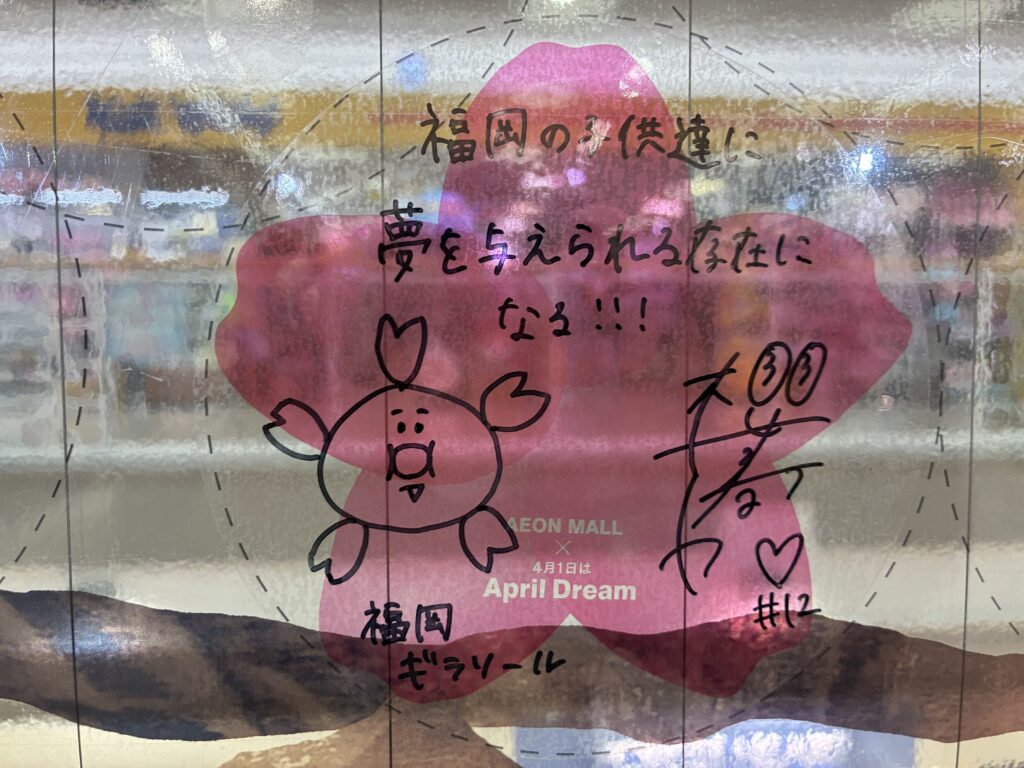 福岡の子供達に
夢を与えられる存在に
なる!!!
AEON MALL
×
4月1日は
April Dream
#12
福岡
ギラソール